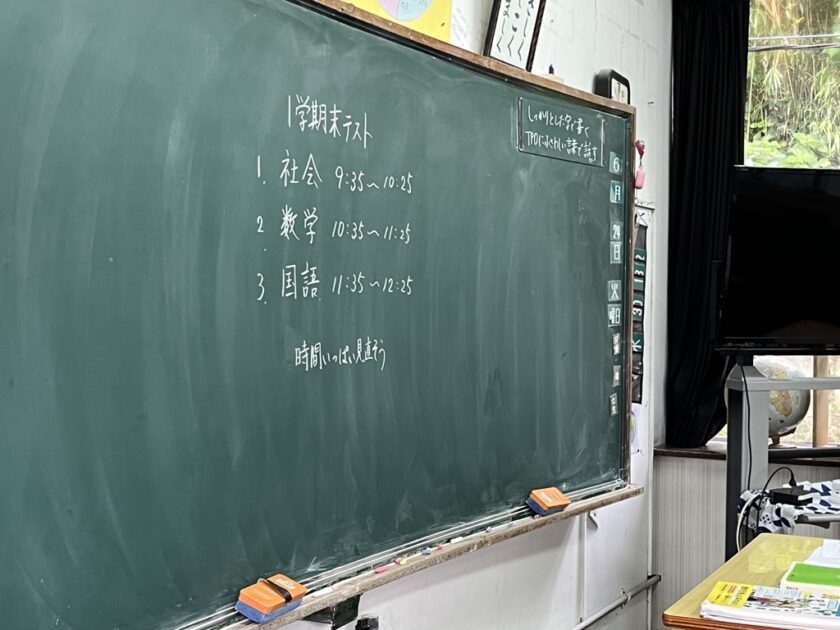 1学期末テスト
1. 社会 9:35～10:25
2. 数学 10:35～11:25
3. 国語 11:35～12:25
時間いっぱい見直そう
しっかりとした字で書く
TPOにふさわしい言葉で話す
6
月
24
日
火
曜日